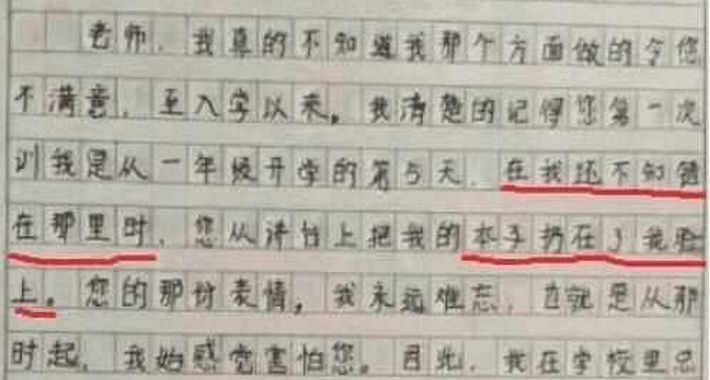 老师，我真的不知道我那个方面做的令您
不满意，至入学以来，我清楚的记得您第一次
训我是从一年级开学的第5天，在我还不知错
在那里时，您从讲台上把我的本子扔在了我脸
上。您的那份表情，我永远难忘，也就是从那
时起，我始感觉害怕您。因此，我在学校里总